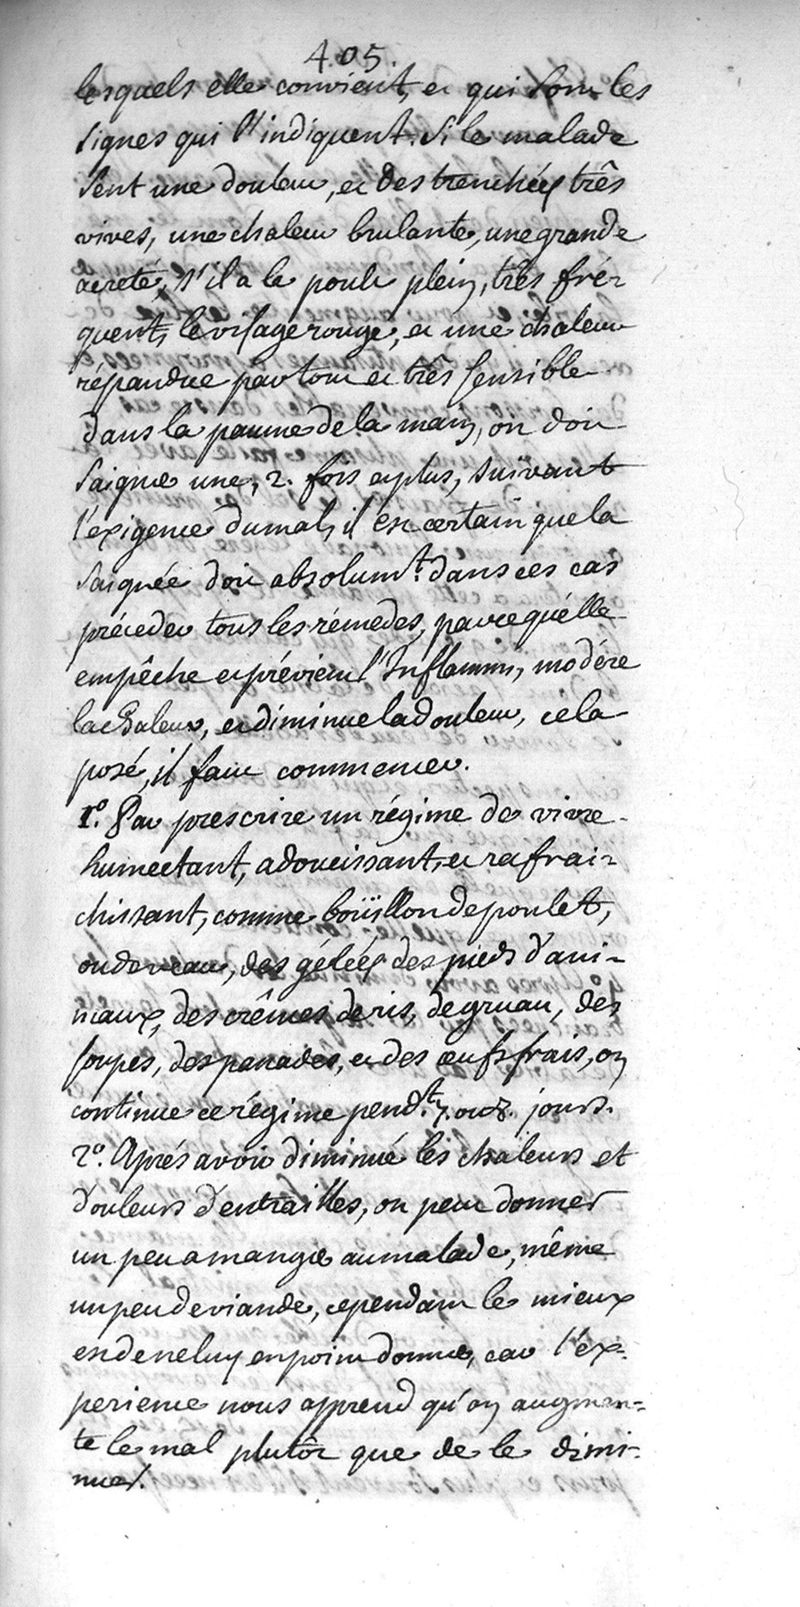 405.
lesquels elle convient, et qui sont les
signes qui l'indiquent. Si le malade
sent une douleur, et des trenchées três
vives, une chaleur brulante, une grande
acreté, s'il a le pouls plein, três fré=
quent, le visage rouge, et une chaleur
répandue par tout et três sensible
dans la paume de la main, on doit
saigner une, 2. fois et plus, suivant
l'exigence du mal, il est certain que la
saignée doit absolumt. dans ces cas
préceder tous les rémedes, parce quélle
empêche et prévient l'Inflamm, modére
la chaleur, et diminue la douleur, céla
posé, il faut commencer.
1º. Par prescrire un régime de vivre
humectant, adoucissant, et rafrai=
chissant, comme boüillon de poulet,
ou de veau, des gélées des pieds d'ani=
maux, des crêmes de ris, de gruau, des
soupes, des panades, et des œufs frais, on
continue ce régime pendt. 7. ou 8. jours.
2º. Aprés avoir diminué les chaleurs et
douleurs d'entrailles, on peut donner
un peu a manger au malade, même
un peu de viande, cependant le mieux
est de ne luy en point donner, car l'ex=
perience nous apprend qu'on augmen=
te le mal plutôt que de le dimi=
nuer.